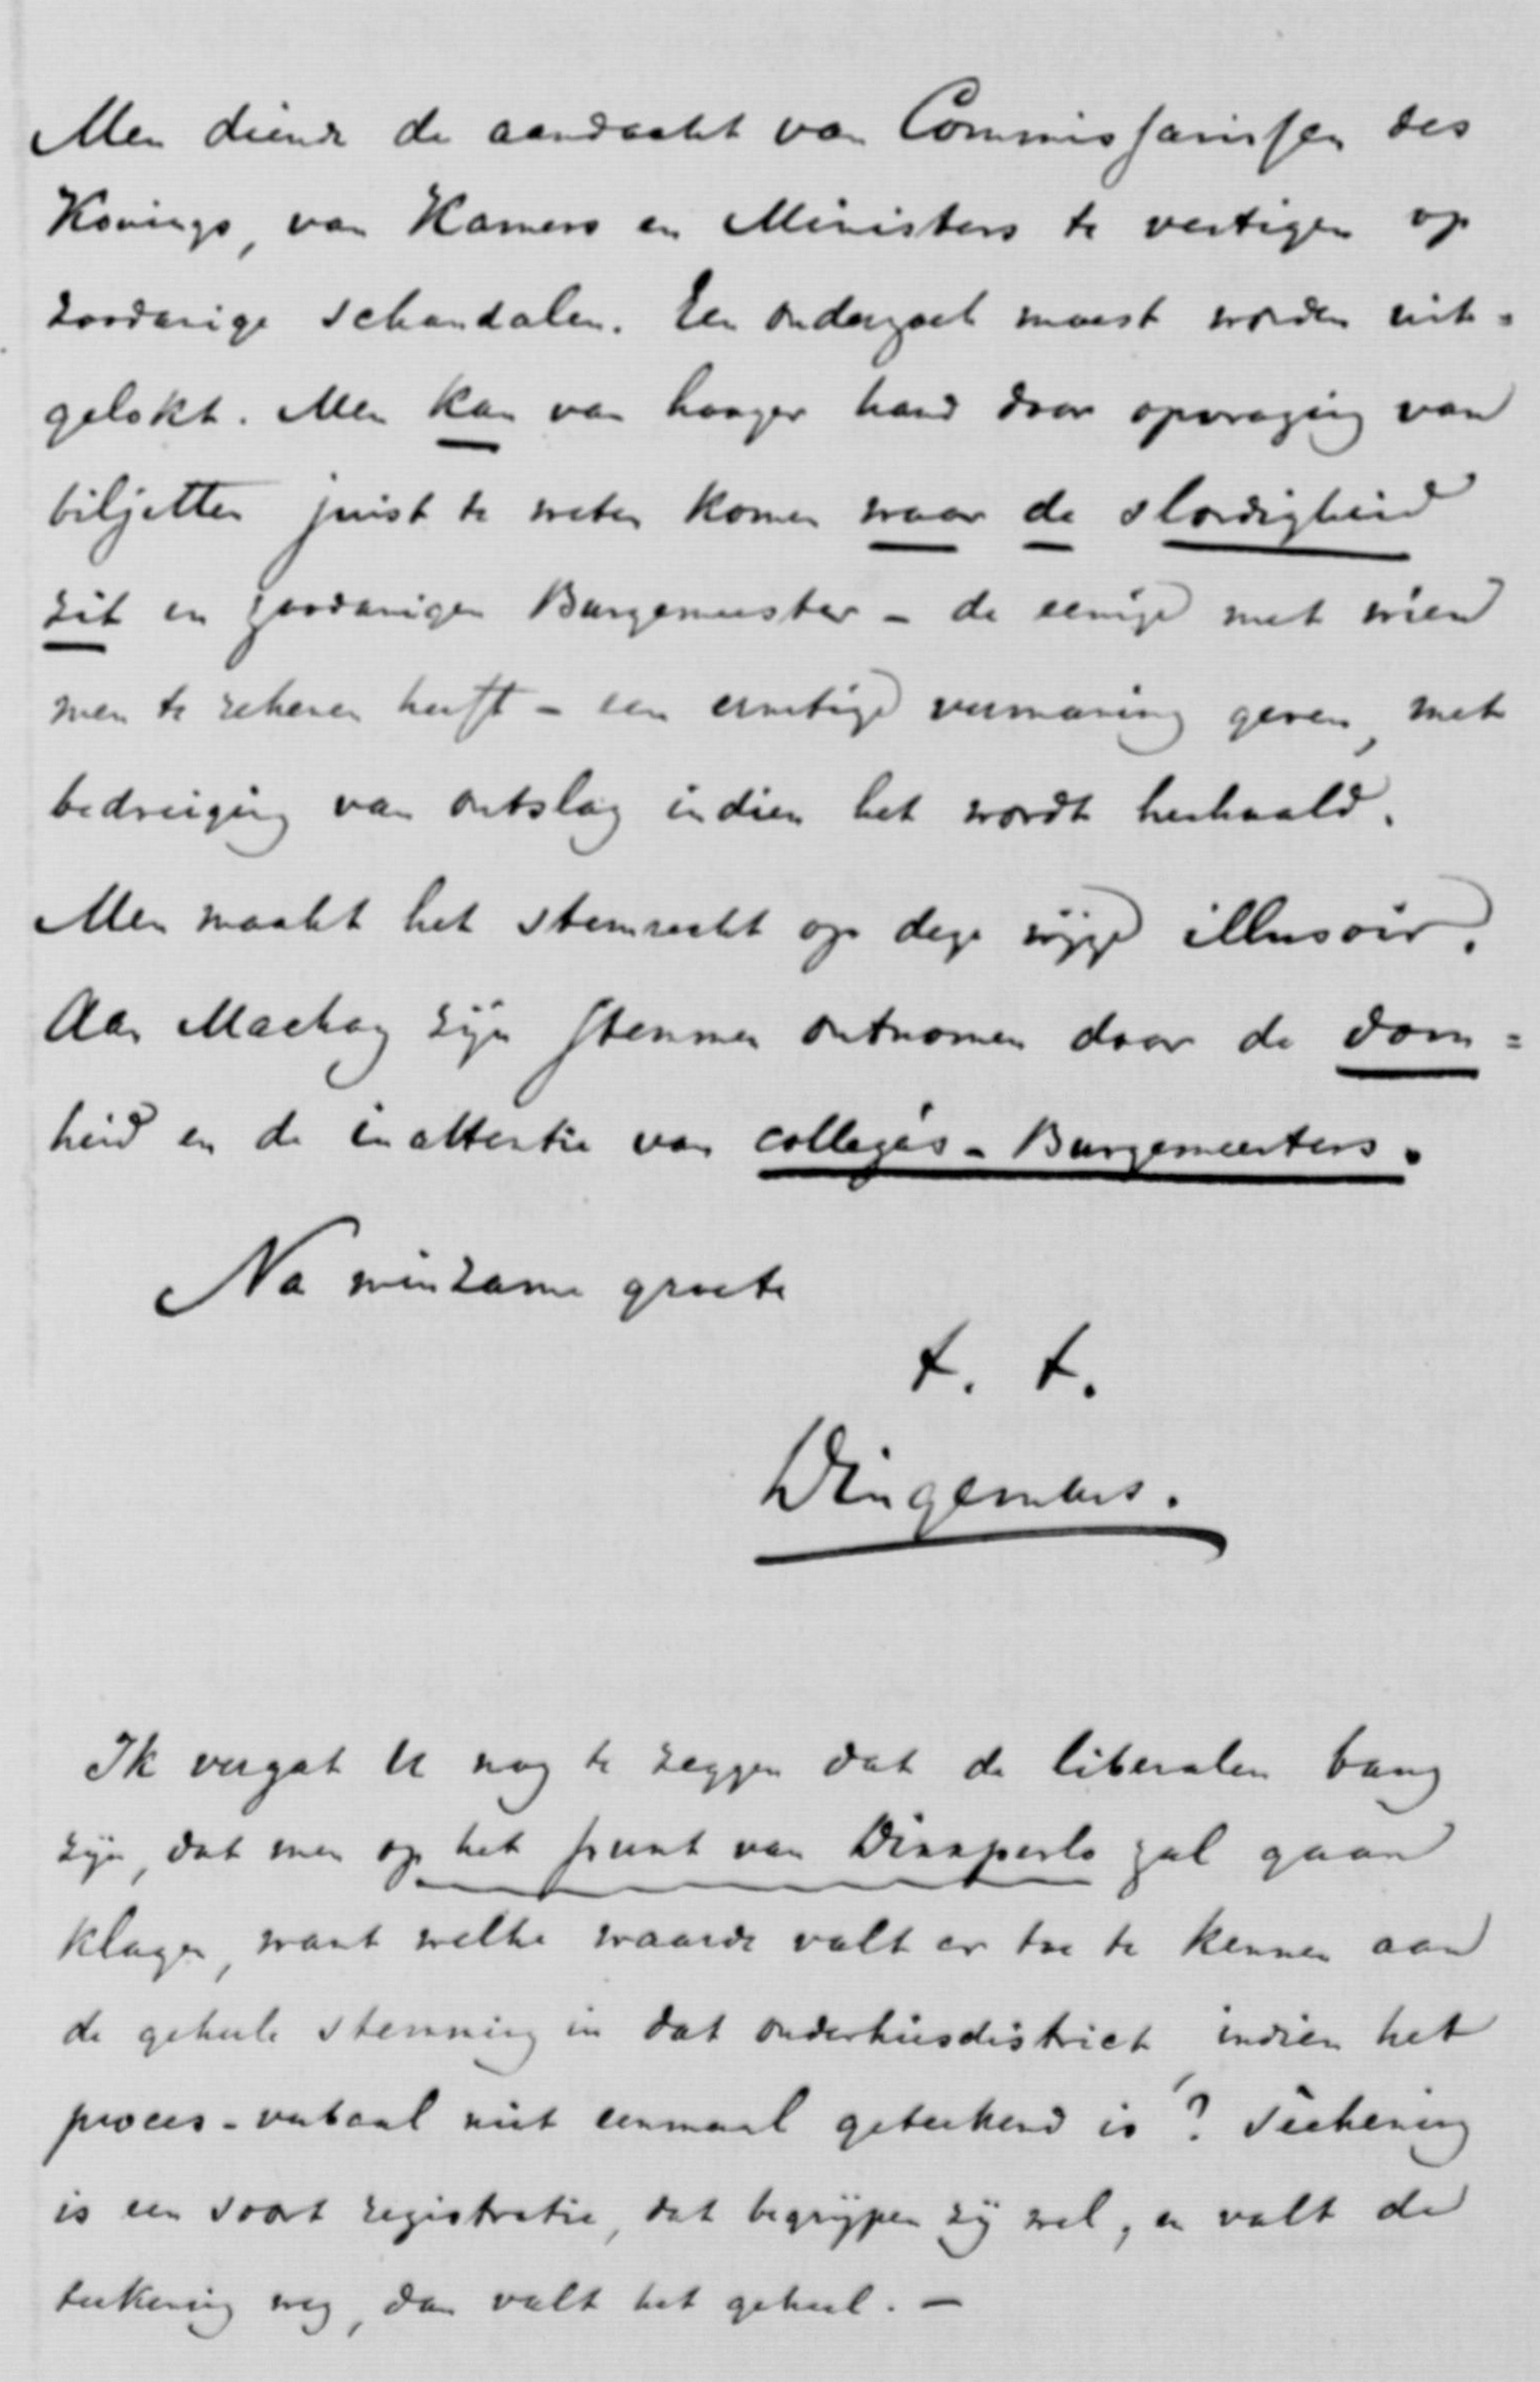 Men diende de aandacht van Commissarissen des
Konings, van Kamers en Ministers te vestigen op
zoodanige schandalen. Een onderzoek moest worden uit=
gelokt. Men kan van hooger hand door opvraging van
biljetten juist te weten komen waar de slordigheid
zit en zoodanigen Burgemeester – de eenige met wien
men te rekenen heeft – een ernstige vermaning geven, met
bedreiging van ontslag indien het wordt herhaald.
Men maakt het stemrecht op deze wijze illusoir.
Aan Mackay zijn stemmen ontnomen door de dom=
heid en de inattentie van collega's-Burgemeesters.
Na minzame groete
t. t.
Dingemans.
Ik vergat U nog te zeggen dat de liberalen bang
zijn, dat men op het punt van Dinxperlo zal gaan
klagen, want welke waarde valt er toe te kennen aan
de geheele stemming in dat onderkiesdistrict indien het
proces-verbaal niet eenmaal geteekend is? Teekening
is een soort registratie, dat begrijpen zij wel, en valt de
teekening weg, dan valt het geheel. –